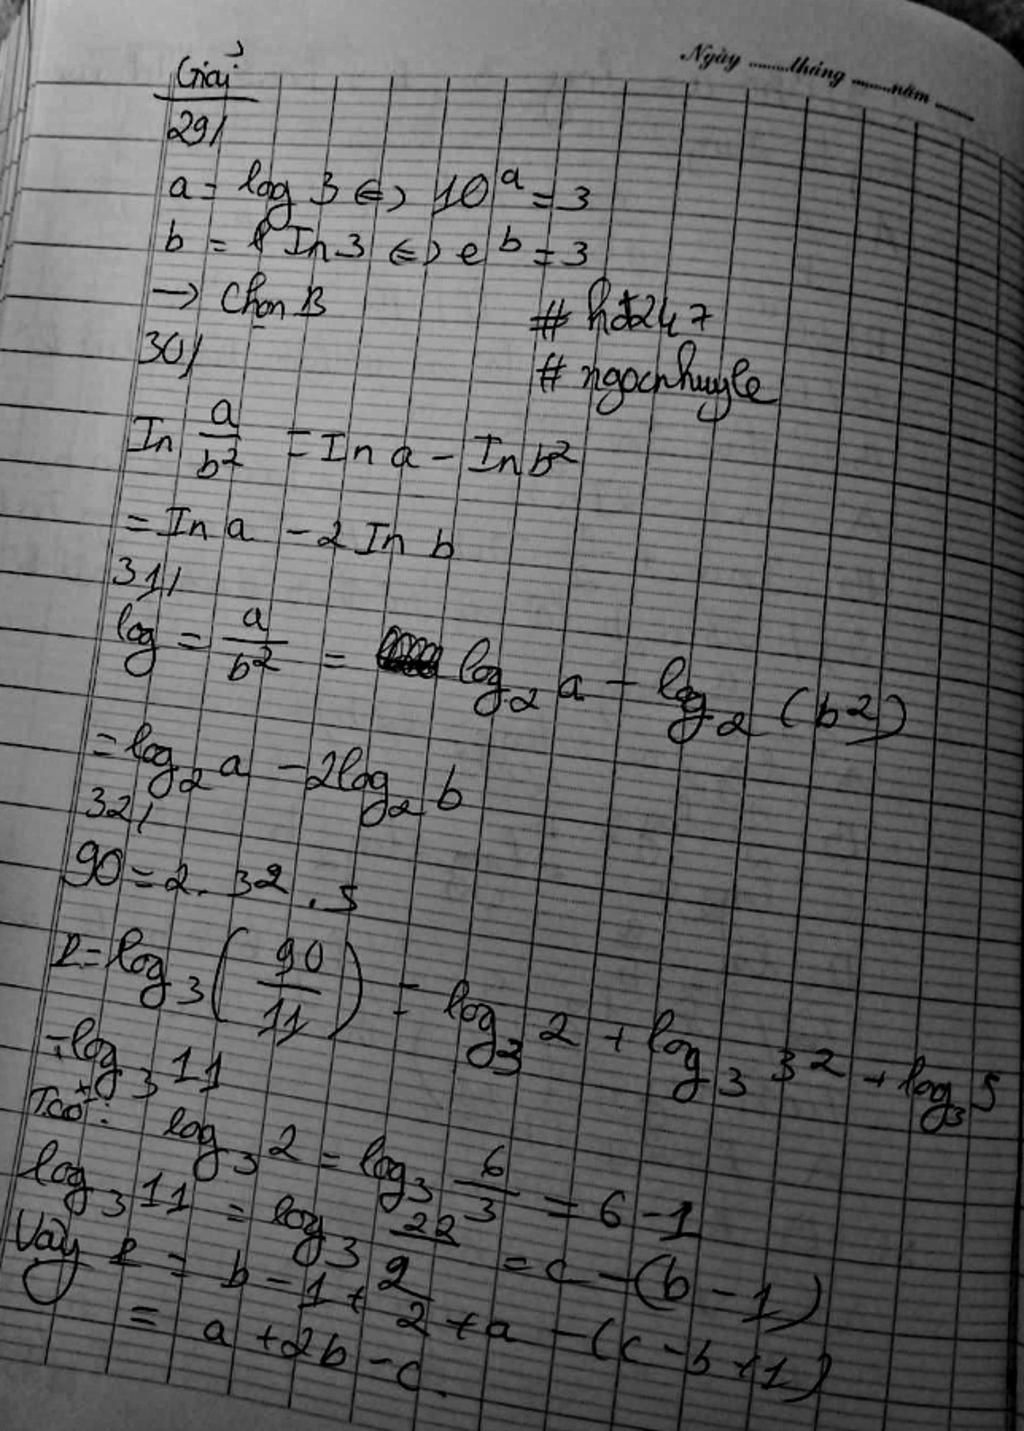 Ngày ........tháng ........năm ........
Giải
29/
a = log 3 <=> 10^a = 3
b = In 3 <=> e^b = 3
-> Chọn B
# hđ247
30/
# ngocnhuyle
In a/b² = In a - In b²
= In a - 2 In b
31/
log = a/b² = log₂ a - log₂ (b²)
= log₂ a - 2log₂ b
32/
90 = 2 . 3² . 5
= log₃ (90/11) = log₃ 2 + log₃ 3² + log₃ 5
- log₃ 11
Ta có: log₃ 2 = log₃ 6/3 = 6 - 1
log₃ 11 = log₃ 22/2 = c - (b - 1)
Vậy = b - 1 + 2 + a - (c - b + 1)
= a + 2b - c.